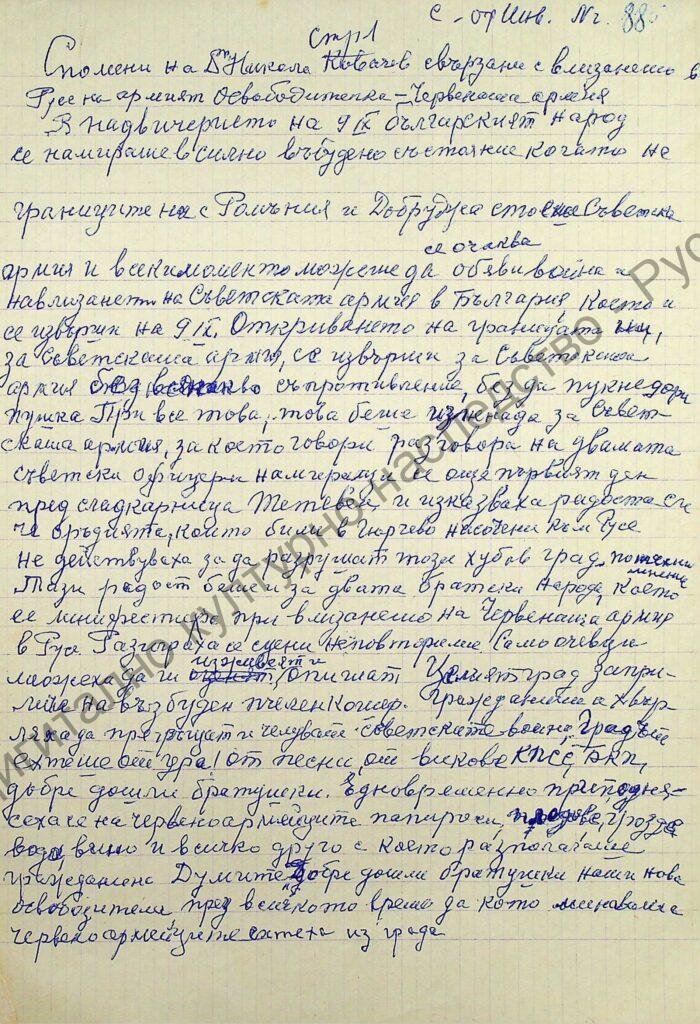 С-от Инв. № 88
стр 1
Спомени на Др Никола Ковачев свързани с влизането в
Русе на армият Освободителка - Червената армия
В надвичерието на 9 IX българският народ
се намираше в силно възбудено състояние когато на
границите на с Ромъния и Добруджа стоеше Съветска
се очаква
армия и всеки момент можеше да обяви война и
навлизането на Съветската армия в България, което и
се извърши на 9 IX. Откриването на границата
за Советската армия, се извърши за Съветската
армия без всякакво съпротивление, без да пукне дори
пушка При все това, това беше изненада за Совет-
ската армия, за което говори разговора на двамата
съветски офицери намиращи се още първият ден
пред сладкарница Тетевен и изказваха радоста си
че оръдията, които били в Гюргево насочени към Русе
не действуваха за да разрушат този хубав град по тяхни
мнение
Тази радост беше и за двата братски народа, което
се манифестира при влизането на Червената армия
в Русе Разиграха се сцени неповторими Само очевидци
можеха да ги изживеят и опишат Целият град запри-
лича на възбуден пчелен кошер. Гражданите а хвър-
ляха да прегръщат и целуват советските война, Градът
ехтеше от ура! от песни, от викове КПСС, БКП,
добре дошли братушки. Едновременно приподня-
сяха се на червеноармейците папироси, плодове, грозде
вода вино и всичко друго с което разполагаше
гражданина Думите Добре дошли братушки наши нова
освободители през всичкото време да като минаваха
червеноармейците ехтеха из града
Дигитално културно наследство - Русе